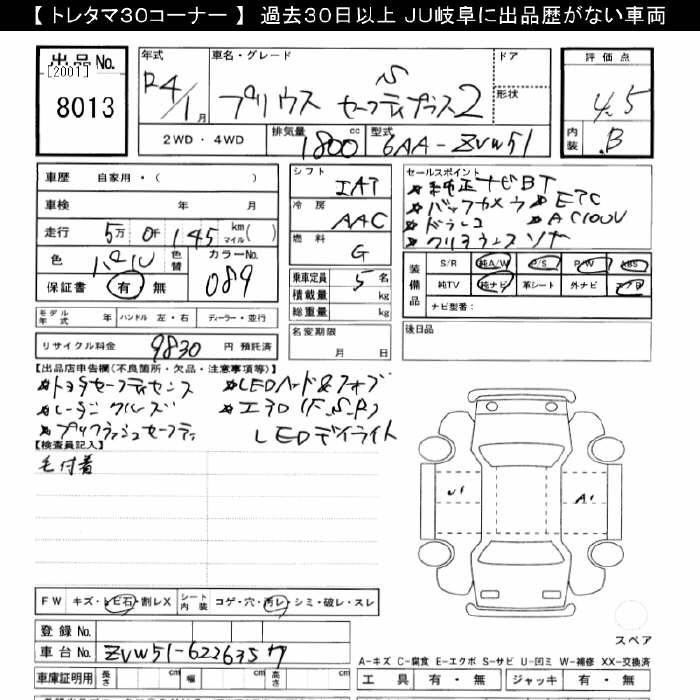 【 トレタマ30コーナー 】 過去30日以上 JU岐阜に出品歴がない車両
出品No.
[2001]
8013
年式
R4/1月
車名・グレード
プリウス S セーフティプラス2
ドア
形状
評価点
4.5
内装
B
2WD・4WD
排気量 1800 cc
型式 6AA-ZVW51
車歴 自家用・( )
車検 年 月
走行 5万 0千 145 km マイル( )
色 パール 色替 カラーNo. 089
保証書 有 無
シフト IAT
冷房 AAC
燃料 G
乗車定員 5 名
積載量 kg
総重量 kg
名変期限 月 日
セールスポイント
*純正ナビBT
*バックカメラ *ETC
*ドラレコ *AC100V
*クリアランスソナー
装備品
S/R 純A/W P/S P/W ABS
純TV 純ナビ 革シート 外ナビ エアB
ナビ型番:
後日品
モデル年式 年 ハンドル 左・右 ディーラー・並行
リサイクル料金 9830 円 預託済
【出品店申告欄(不良箇所・欠品・注意事項等)】
*トヨタセーフティセンス *LEDヘッド&フォグ
*レーダークルーズ *エアロ(F,S,R)
*プリクラッシュセーフティ LEDデイライト
【検査員記入】
毛付着
U1
A1
FW キズ・トビ石・割レX シート内装 コゲ・穴・汚レ・シミ・破レ・スレ
登録No.
車台No. ZVW51-6226357
車庫証明用 長さ cm 幅 cm 高さ cm
スペア
A-キズ C-腐食 E-エクボ S-サビ U-凹ミ W-補修 XX-交換済
工具 有・無 ジャッキ 有・無